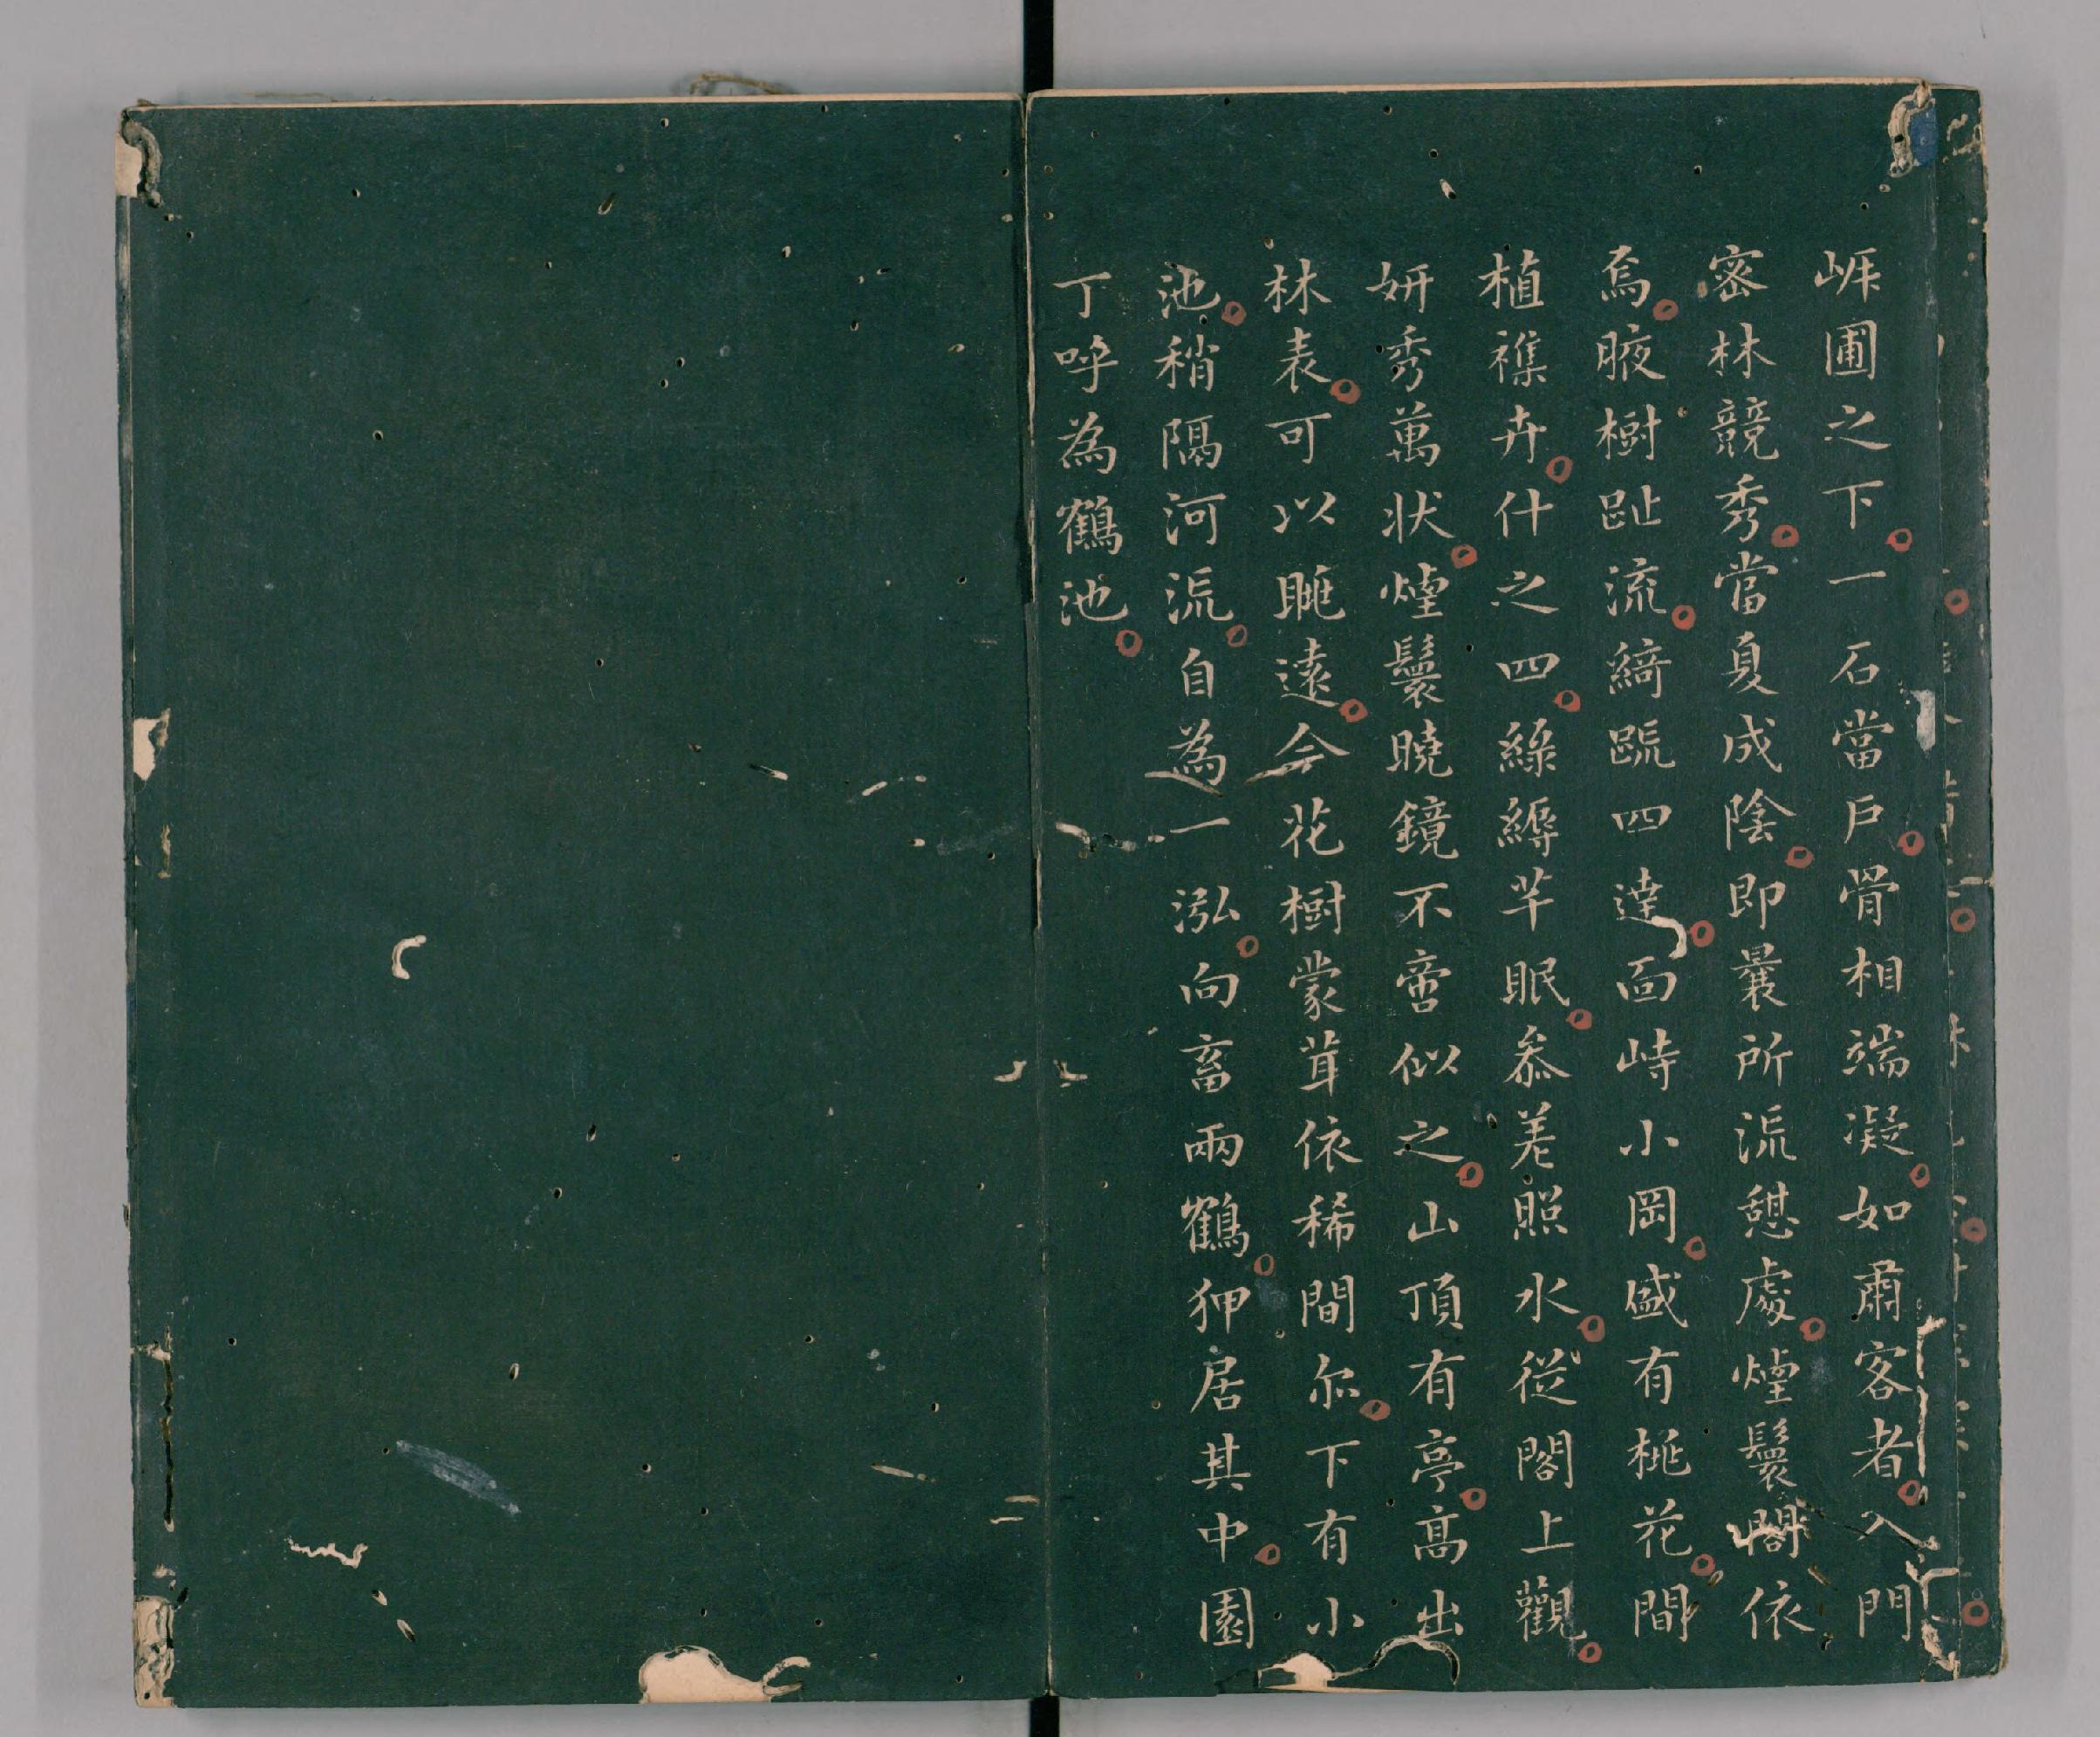 崕圃之下一石當戶骨相端凝如肅客者入門
密林競秀當夏成陰即曩所流憩處煙鬟閣依
焉腋樹趾流綺䟽四達面峙小岡盛有桃花間
植襍卉什之四綠縟芊眠叅差照水從閣上觀
妍秀萬狀煙鬟曉鏡不啻似之山頂有亭高出
林表可以眺遠今花樹蒙茸依稀間尔下有小
池稍隔河流自為一泓向畜兩鶴狎居其中園
丁呼為鶴池